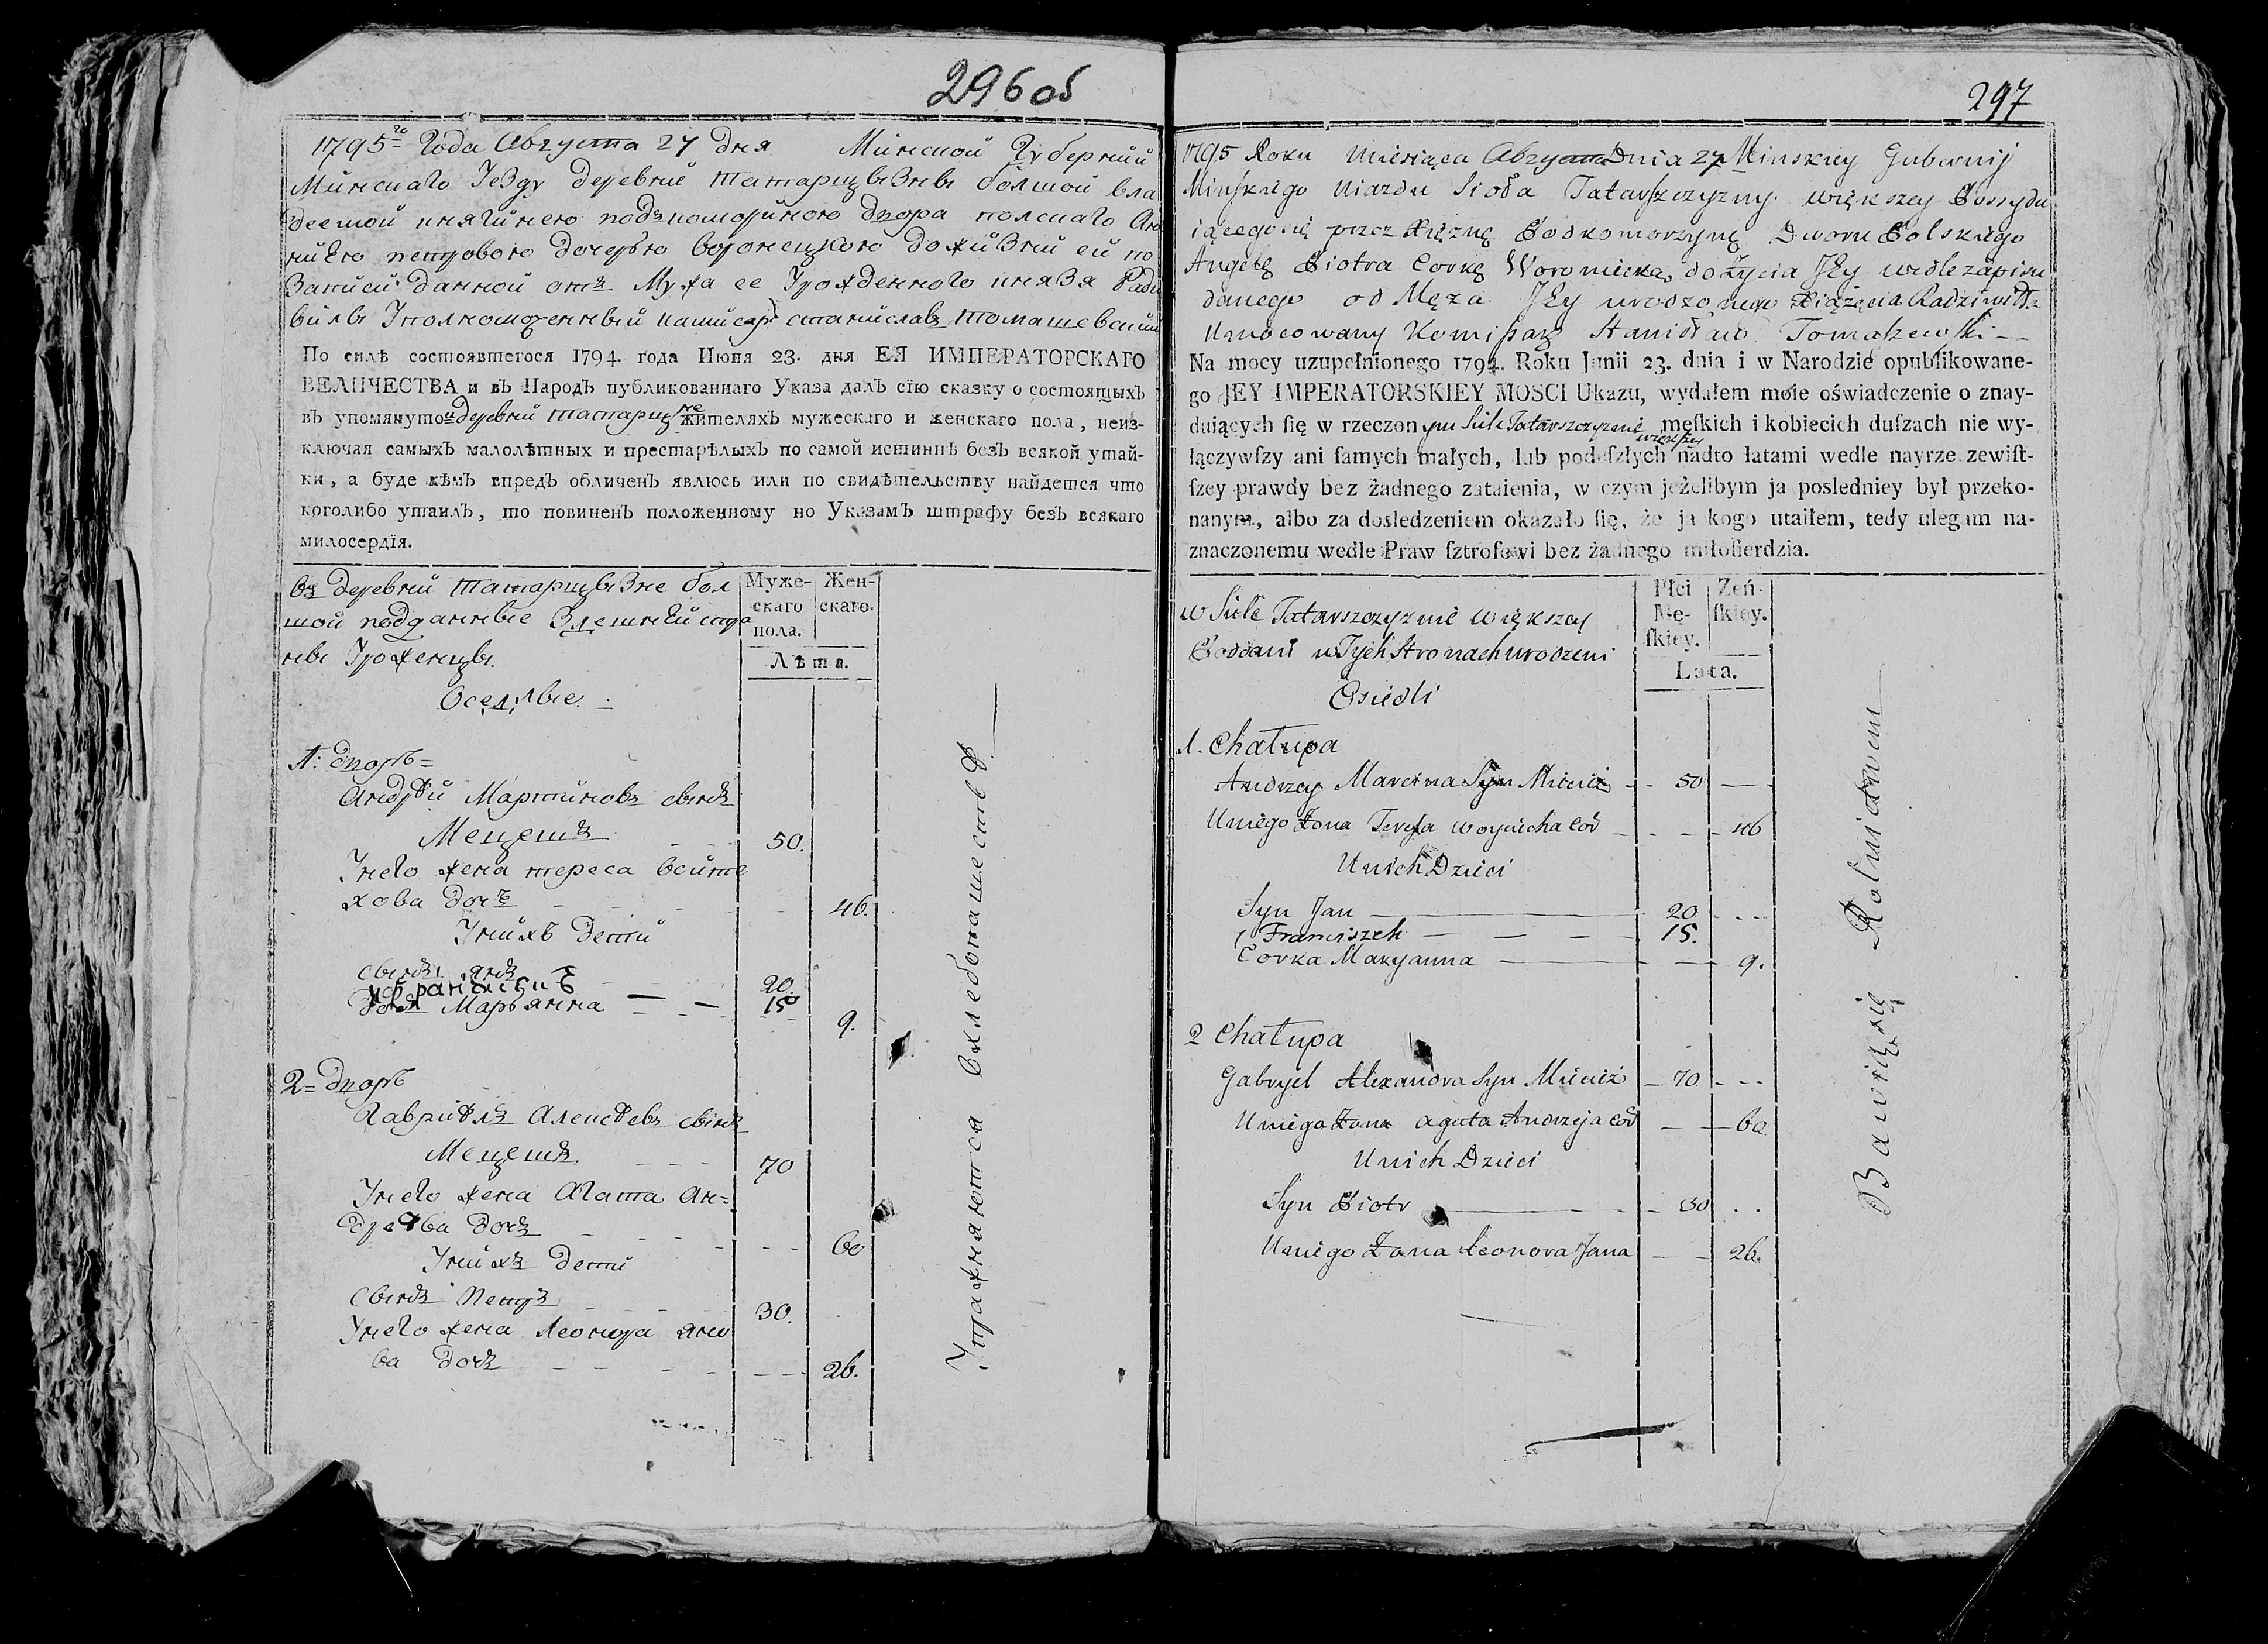 296 об
1795го Года Августа 27 дня Минской Губернии
Минскаго Уезду деревни Татарщызны болшой вла
деемой княгинею подкоморыною двора полскаго Ан
петровою дочерью воронецкою дожизни ей по
записи данной отъ Мужа ее Урожденного князя Рады
вилы Уполномоченный камисаръ станиславъ томашевский
По силѣ состоявшегося 1794. года Июня 23. дня ЕЯ ИМПЕРАТОРСКАГО
ВЕЛИЧЕСТВА и въ Народъ публикованнаго Указа далъ сїю сказку о состоящыхъ
въ упомянутой деревни татарщызне жителяхъ мужескаго и женскаго пола, неиз-
ключая самыхъ малолѣтныхъ и престарѣлыхъ по самой истиннѣ безъ всякой утай-
ки, а буде кѣмъ впредъ обличенъ явлюсь или по свидѣтельству найдется что
коголибо утаилъ, то повиненъ положенному по Указамъ штрафу безъ всякаго
милосердїя.
въ деревни татарщызне бол
шой подданные здешней стра
ны Уроженцы.
Оселлые.
Муже-
скаго
пола.
Жен-
скаго.
Лѣта.
1: дворъ=
Андрѣй Мартиновъ сынъ
Мецешъ 50.
Унего жена тереса войте
хова дочъ 46.
Унихъ дети
сынъ янъ 20.
францишкъ 15
дочъ Марьянна 9.
2= дворъ
Гавриѣлъ Алексѣевъ сынъ
Мецешъ 70
Унего жена Агата Ан=
дреѣва дочъ 60
Унихъ дети
сынъ Петръ 30.
Унего жена Леонора яно
ва дочъ 26.
Упражняются вхлебопашествѣ
297
1795 Roku Miesiąca Августа Dnia 27 Minskiey Gubernij
Minſkiego Uiazdu Sioła Tatarſzczyzny większey Possydu
iącegosię przez Xięznę Podkomorzynę Dworu Polskiego
Angelę Piotra Corkę Woroniecką do Zycia Jey wedle zapisu
danego od Męza Jey urodzonego Xiążęcia Radziwiłła
Umocowany Komiſarz Stanisław Tomaſzewſki
Na mocy uzupełnionego 1794. Roku Junii 23. dnia i w Narodzie opublikowane-
go JEY IMPERATORSKIEY MOSCI Ukazu, wydałem moie oświadczenie o znay-
duiących ſię w rzeczonym Siele Tatarszczyznie większey męſkich i kobiecich duſzach nie wy-
łączywſzy ani ſamych małych, lub podeſzłych nadto latami wedle nayrzeczewiſt-
ſzey prawdy bez żadnego zataienia, w czym jeżelibym ja posledniey był przeko-
nanym, albo za dosledzeniem okazało ſię, że ja kogo utaiłem, tedy ulegam na-
znaczonemu wedle Praw ſztrofowi bez żadnego miłoſierdzia.
w Siele Tatarszczyznie większey
Poddani w Tych Stronach urodzeni
Osiedli
Płci
Mę-
ſkiey.
Zeń-
ſkiey.
Lata.
1. Chałupa
Andrzey Marcina Syn Micież 50
Uniego Zona Tereſa Woyciecha Cor 46
Unich Dzieci
Syn Jan 20
Franciszek 15.
Corka Maryanna 9.
2 Chałupa
Gabryel Alexandra Syn Micież 70
Uniego Zona Agata Andrzeja Cor 60
Unich Dzieci
Syn Piotr 30
Uniego Zona Leonora Jana 26.
Bawią się Rolnictwem